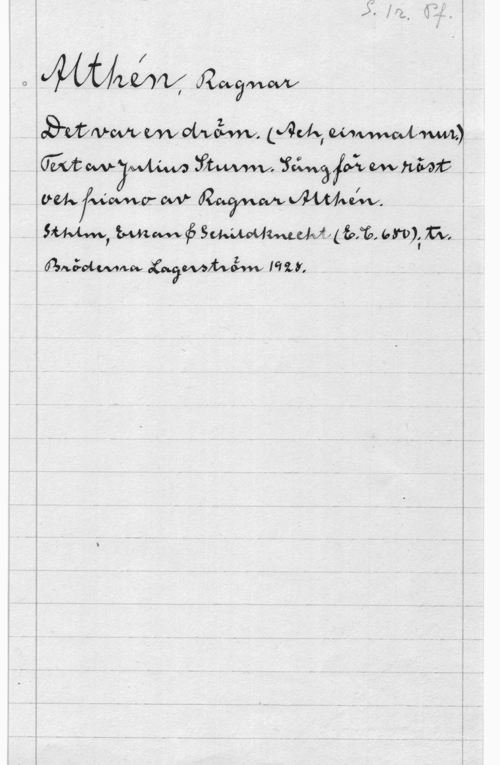 S. 1r. Pf.
Althén, Ragnar
Det var en dröm. (Ach, einmal nur.)
Text av Julius Sturm. Sång för en röst
och piano av Ragnar Althén.
Sthlm, Elkan & Schildknecht (E.C. 680); tr.
Bröderna Lagerström 1928.